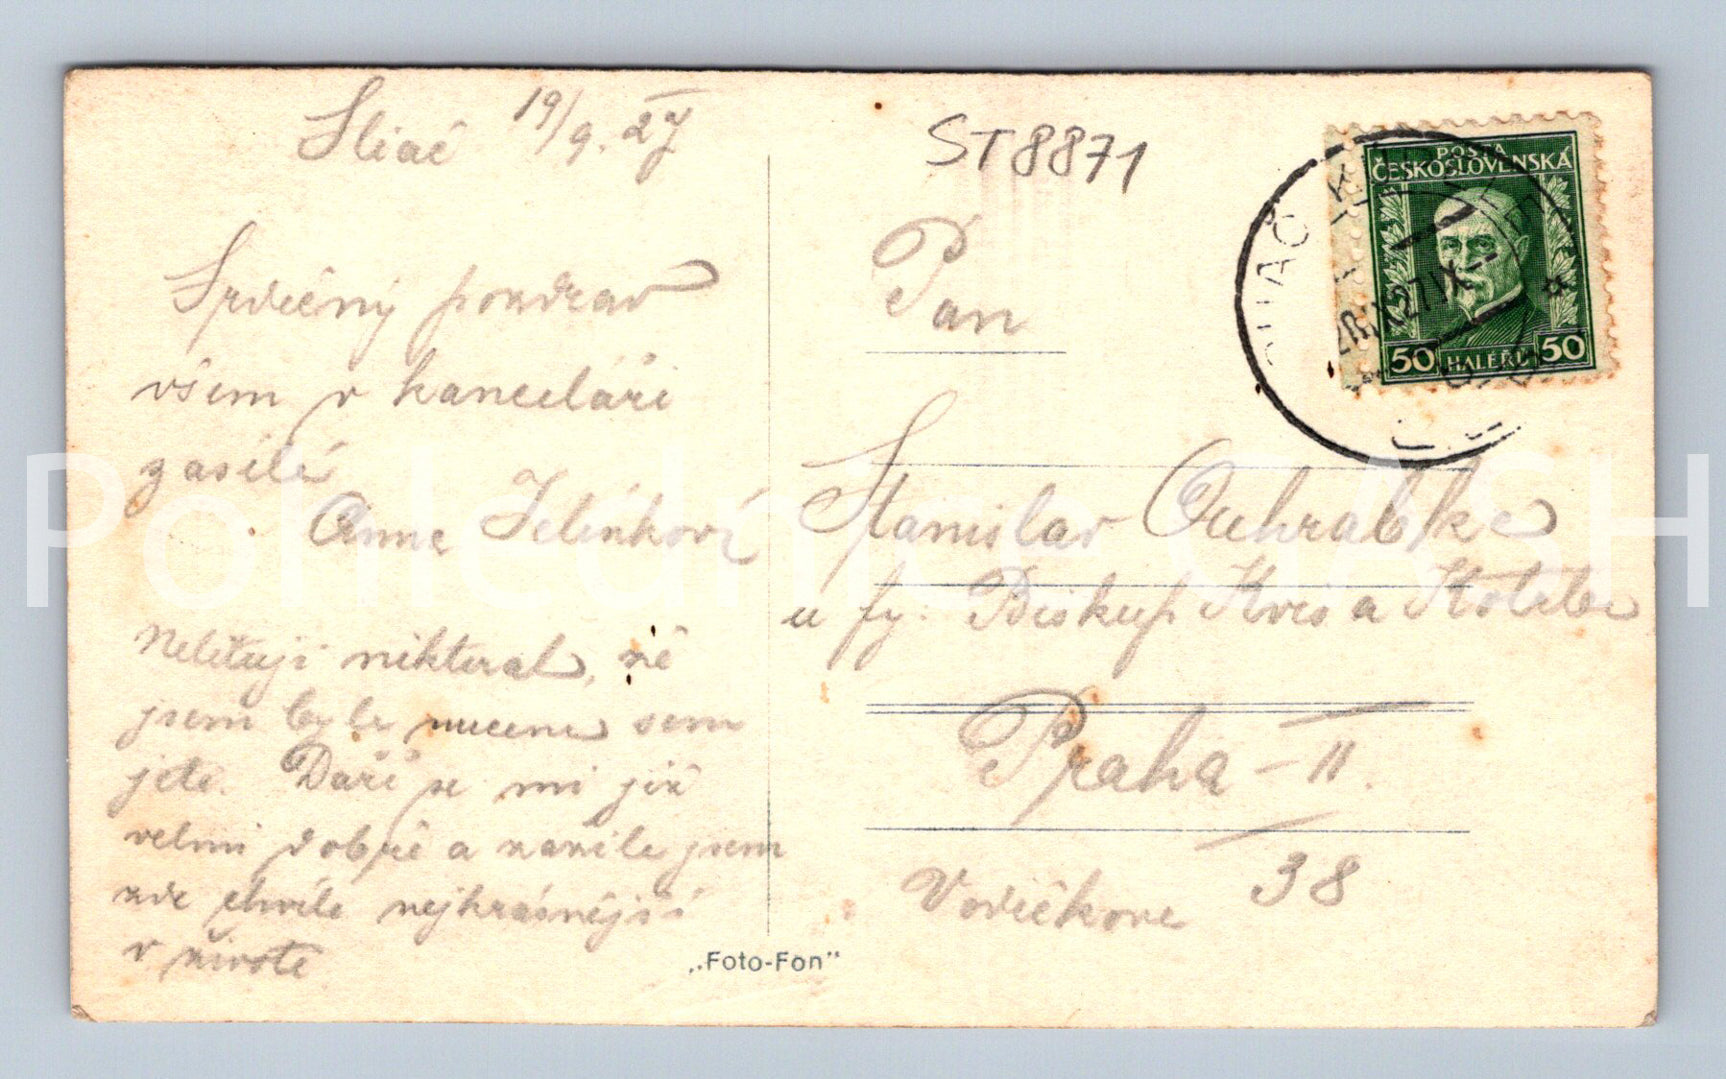 Sliač 19/9. 27
ST8871
POŠTA
ČESKOSLOVENSKÁ
50 HALÉŘŮ 50
SLIAČ
20.IX.27
Srdečný pozdrav
všem v kanceláři
zasílá
Anna Jelínková
Nelituji nikterak, že
jsem byla nucena sem
jeti. Daří se mi již
velmi dobře a zažila jsem
zde chvíle nejkrásnější
v životě
Pan
Stanislav
u fy. Biskup Kvis a Kotrba
Praha – II.
Vodičkova 38
„Foto-Fon"
Pohlednice SASH